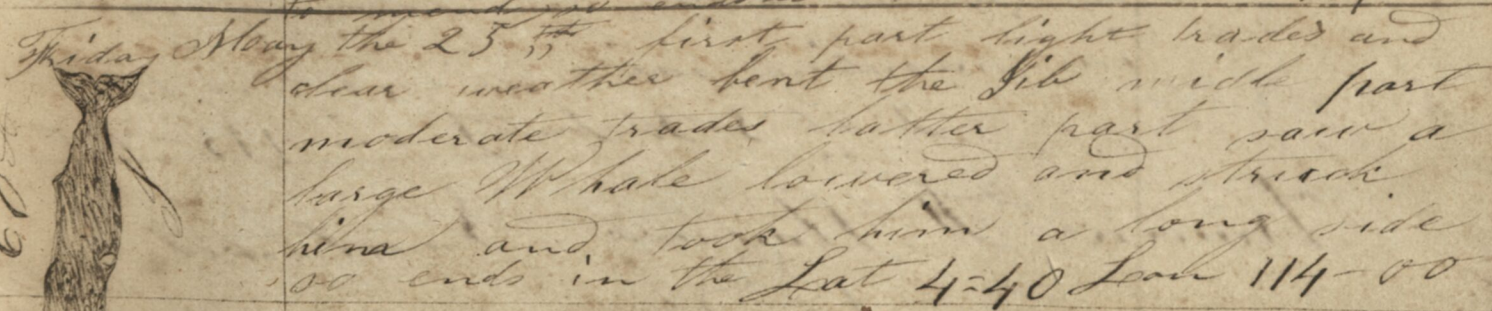 so ends
Friday May the 25th first part light trades and
clear weather bent the Jib midle part
moderate trades latter part saw a
large Whale lowered and struck
him and took him a long side
so ends in the Lat 4=40 Lon 114-00